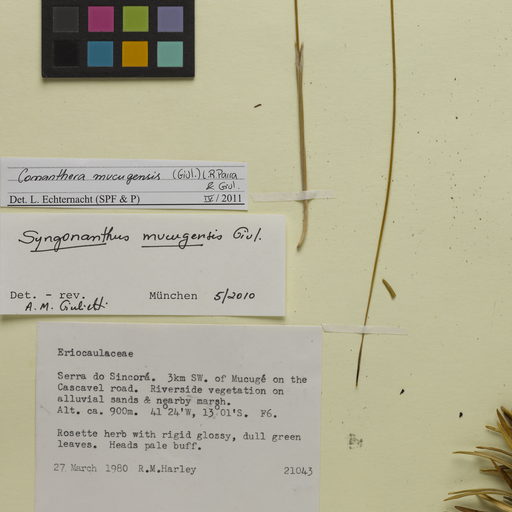 Comanthera mucugensis (Giul.) L.R.Parra
& Giul.
Det. L. Echternacht (SPF & P) IV / 2011
Syngonanthus mucugensis Giul.
Det. - rev. München 5/2010
A. M. Giulietti
Eriocaulaceae
Serra do Sincorá. 3km SW. of Mucugê on the
Cascavel road. Riverside vegetation on
alluvial sands & nearby marsh.
Alt. ca. 900m. 41°24'W, 13°01'S. F6.
Rosette herb with rigid glossy, dull green
leaves. Heads pale buff.
27 March 1980 R.M.Harley 21043